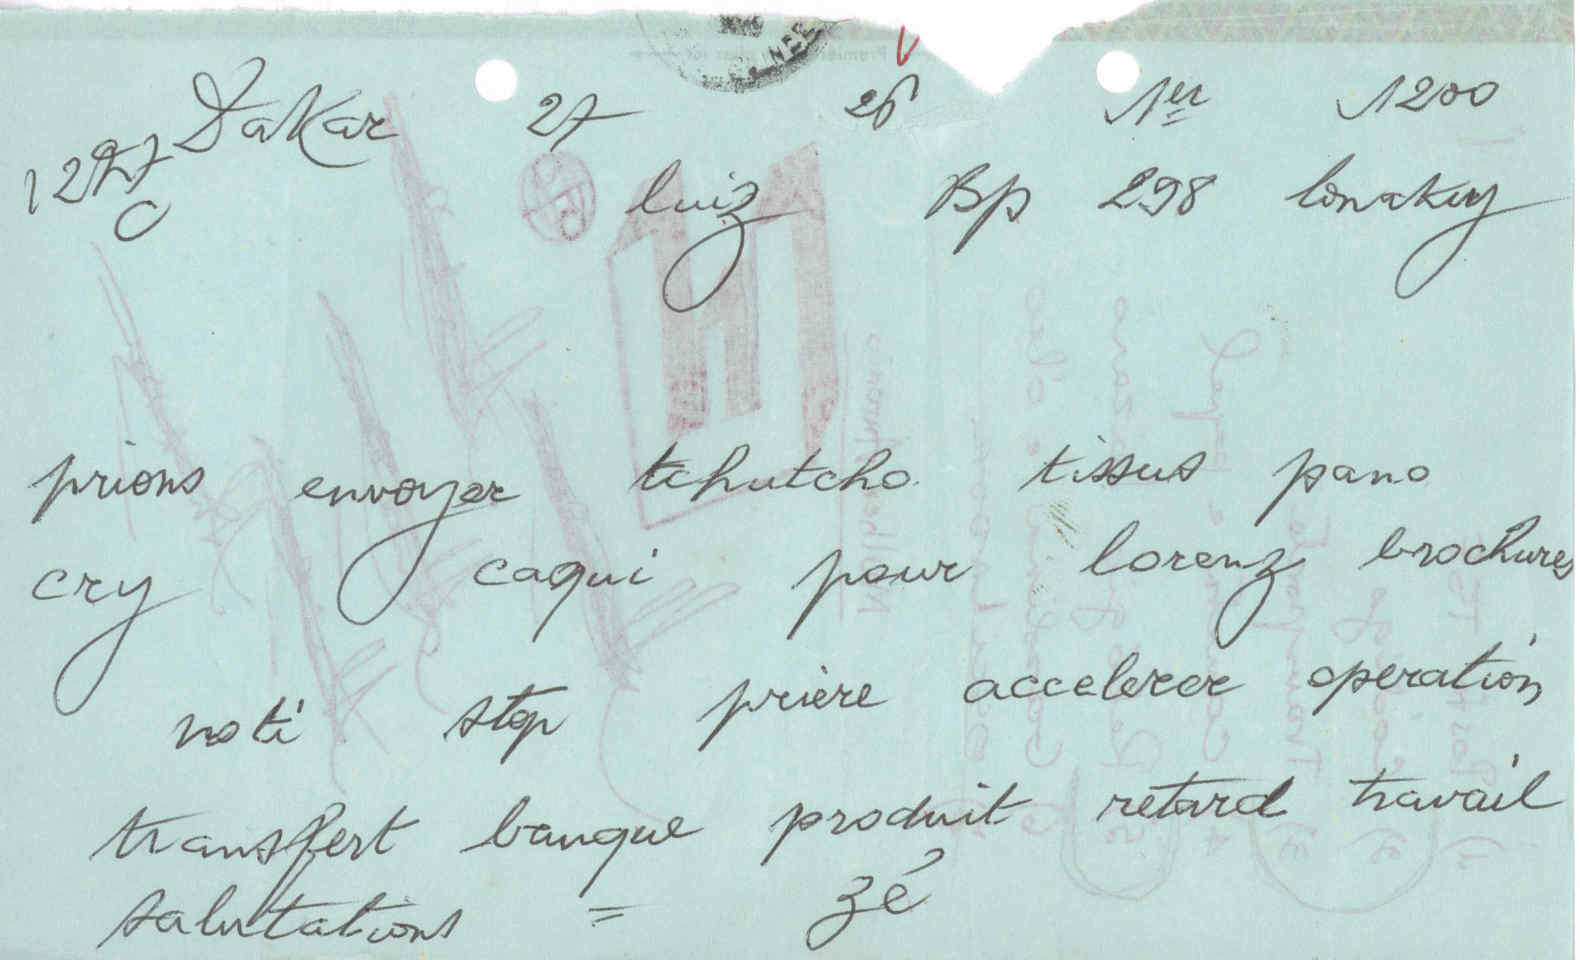 Dakar 27 26 1er 1200
luiz Bp 298 Conakry
prions envoyer tchutcho tissus pano
cry caqui pour lorenz brochures
noti stop prière accelerer operation
transfert banque produit retard travail
salutations = zé